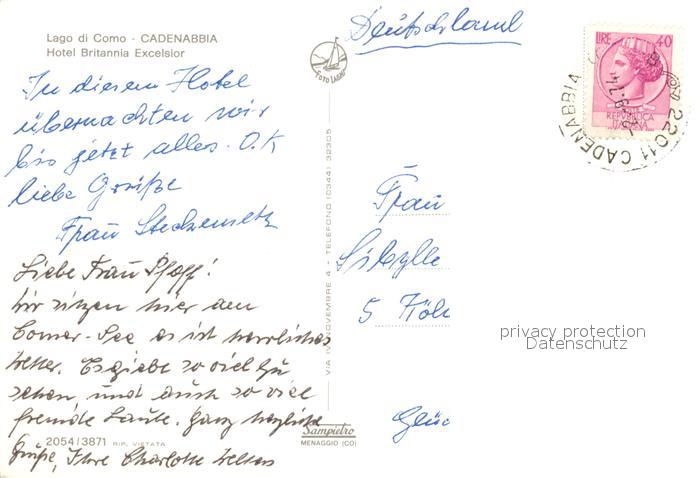 Lago di Como - CADENABBIA
Hotel Britannia Excelsior
In diesem Hotel
übernachten wir
bis jetzt alles O.K
liebe Grüße
Frau
Liebe Frau Pfaff!
Wir sitzen hier am
Comer-See es ist herrliches
Wetter. Es giebt so viel zu
sehen, und auch so viel
fremde Leute. Ganz herzliche
Grüße, Ihre Charlotte
2054/3871 RIP. VIETATA
FOTO LAGHI
VIA IV NOVEMBRE 4 - TELEFONO (0344) 32305
Sampietro
MENAGGIO (CO)
Deutschland
LIRE 40
REPUBBLICA
ITALIANA
22011 CADENABBIA
Frau
Sibylle
5 Köln
privacy protection
Datenschutz